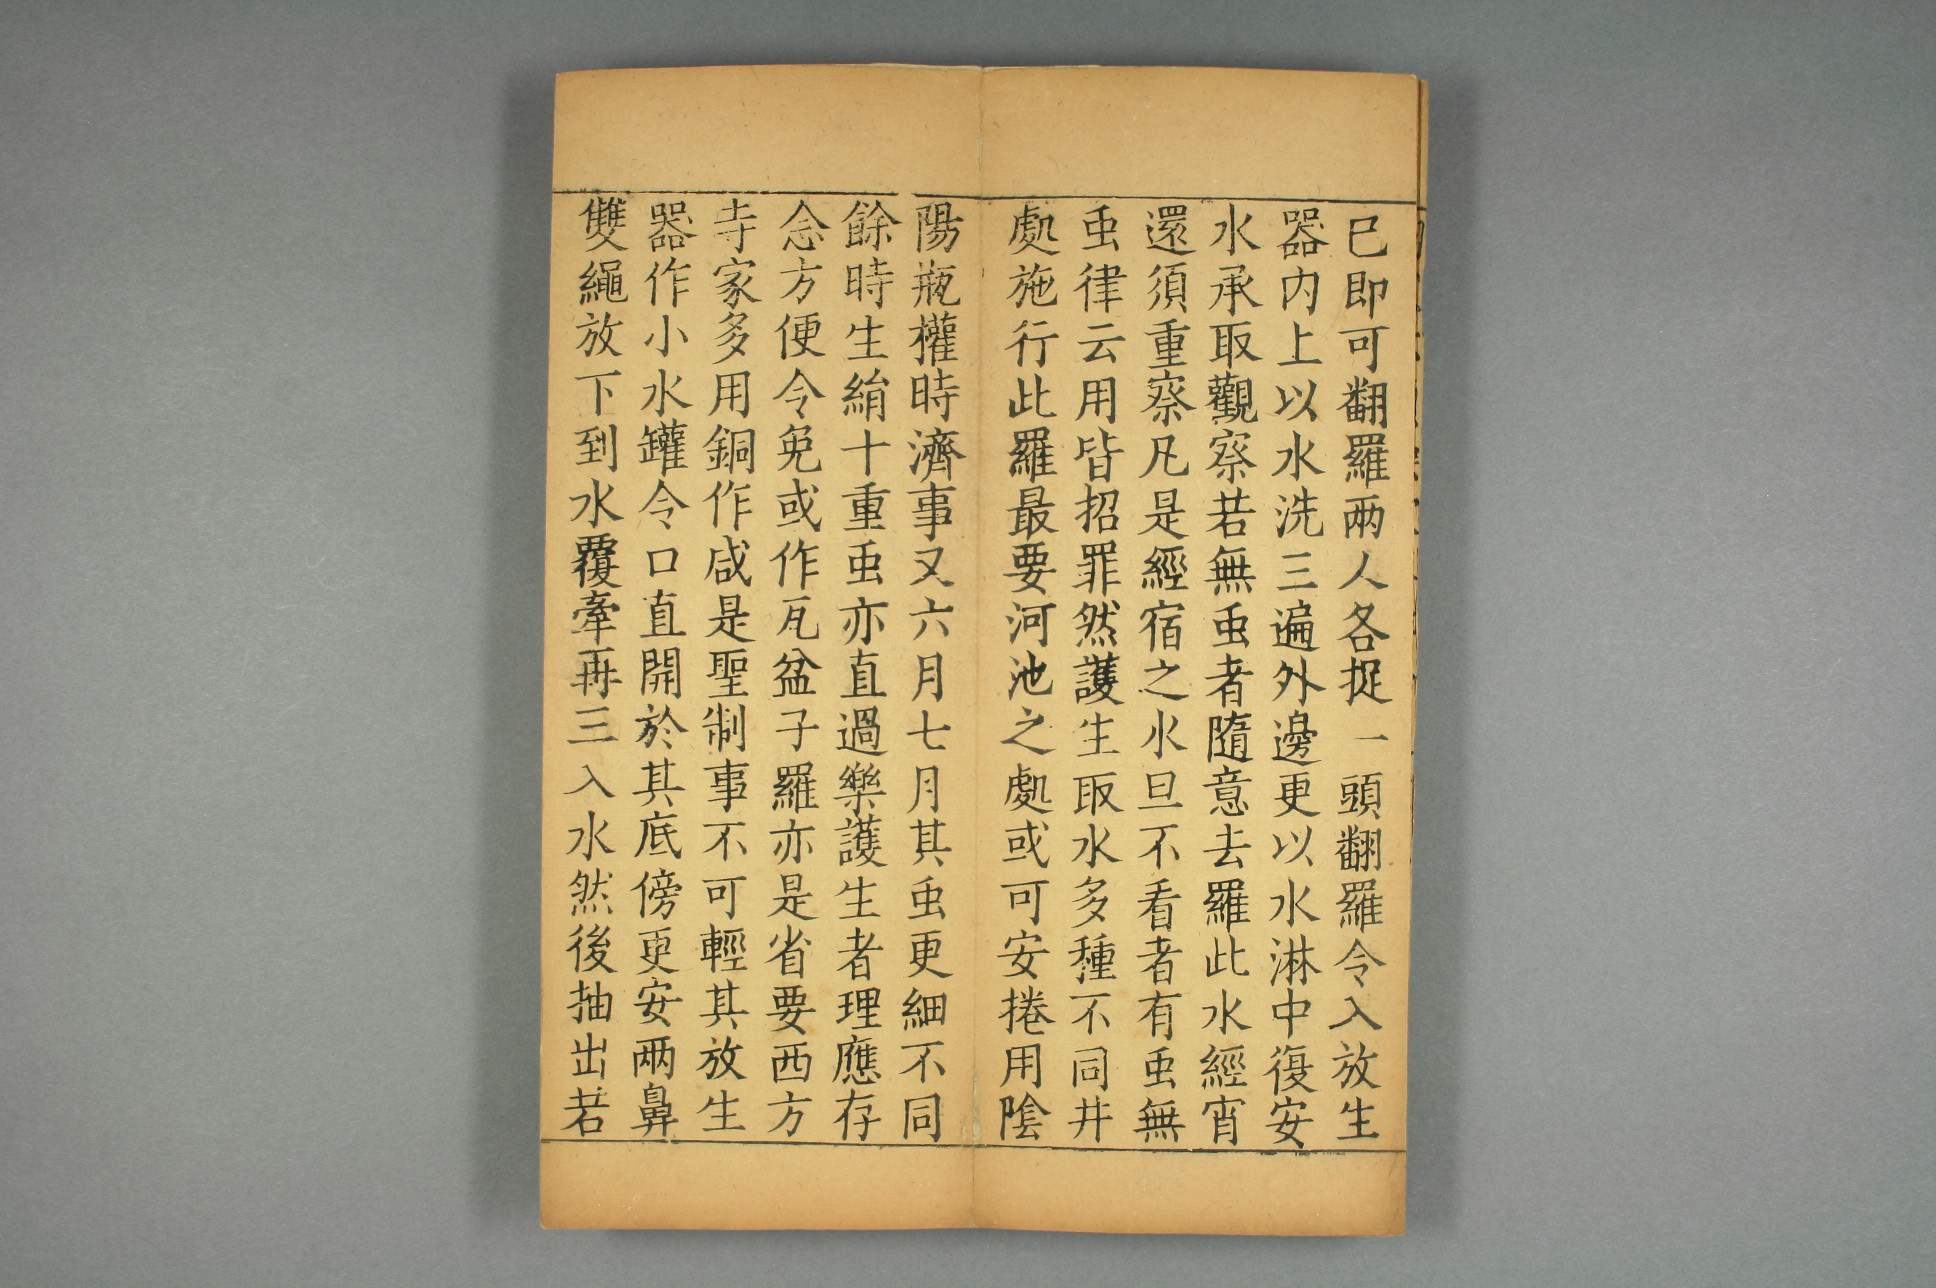 已即可翻羅兩人各捉一頭翻羅令入放生
器内上以水洗三遍外邊更以水淋中復安
水承取觀察若無䖝者隨意去羅此水經宵
還須重察凡是經宿之水旦不看者有䖝無
䖝律云用皆招罪然護生取水多種不同井
處施行此羅最要河池之處或可安捲用陰
陽瓶權時濟事又六月七月其䖝更細不同
餘時生絹十重䖝亦直過樂護生者理應存
念方便令免或作瓦盆子羅亦是省要西方
寺家多用銅作咸是聖制事不可輕其放生
器作小水罐令口直開於其底傍更安兩鼻
雙繩放下到水覆牽再三入水然後抽出若